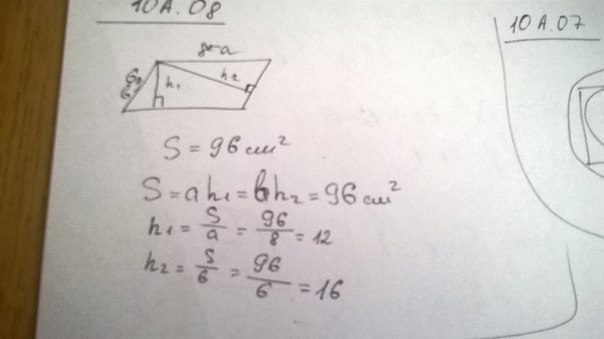 10А.08
10А.07
8=a
h₁
h₂
S = 96 см²
S = ah₁ = bh₂ = 96 см²
h₁ = S/a = 96/8 = 12
h₂ = S/b = 96/6 = 16